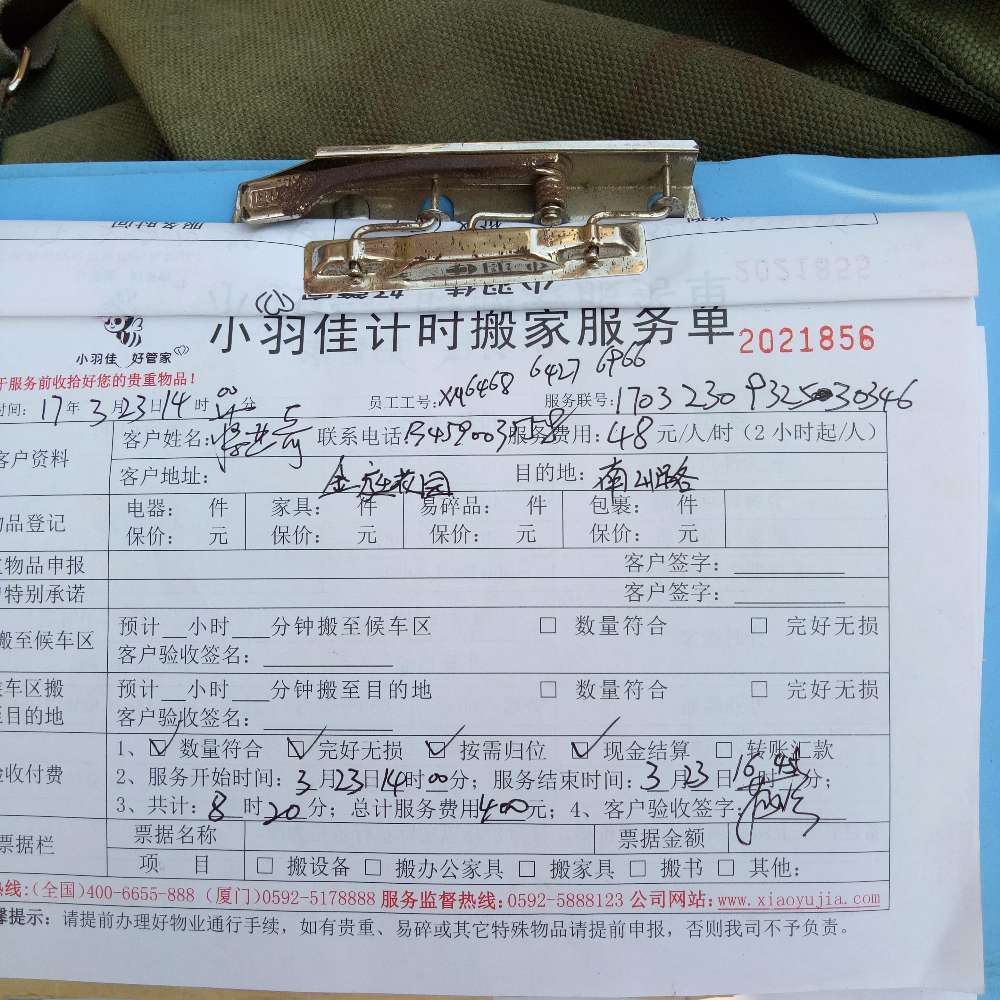 2021855
小羽佳 好管家
小羽佳计时搬家服务单 2021856
小羽佳 好管家
于服务前收拾好您的贵重物品！
时间：17年3月23日14时00分 员工工号：XM6468 6427 6966 服务联号：1703230932530346
客户资料 客户姓名： 联系电话：13459003558 服务费用：48元/人/时（2小时起/人）
客户地址：金庭花园 目的地：南山路
物品登记 电器： 件 家具： 件 易碎品： 件 包裹： 件
保价： 元 保价： 元 保价： 元 保价： 元
物品申报 客户签字：
特别承诺 客户签字：
搬至候车区 预计__小时___分钟搬至候车区 □ 数量符合 □ 完好无损
客户验收签名：
车区搬 预计__小时___分钟搬至目的地 □ 数量符合 □ 完好无损
至目的地 客户验收签名：
验收付费 1、☑ 数量符合 ☑ 完好无损 ☑ 按需归位 ☑ 现金结算 □ 转账汇款
2、服务开始时间：3月23日14时00分；服务结束时间：3月23日16时45分；
3、共计：8时20分；总计服务费用400元；4、客户验收签字：
票据栏 票据名称 票据金额
项 目 □ 搬设备 □ 搬办公家具 □ 搬家具 □ 搬书 □ 其他：
热线：（全国）400-6655-888（厦门）0592-5178888 服务监督热线：0592-5888123 公司网站：www.xiaoyujia.com
馨提示：请提前办理好物业通行手续，如有贵重、易碎或其它特殊物品请提前申报，否则我司不予负责。